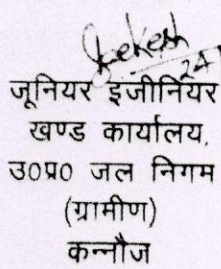 जूनियर इंजीनियर
खण्ड कार्यालय,
उ0प्र0 जल निगम
(ग्रामीण)
कन्नौज